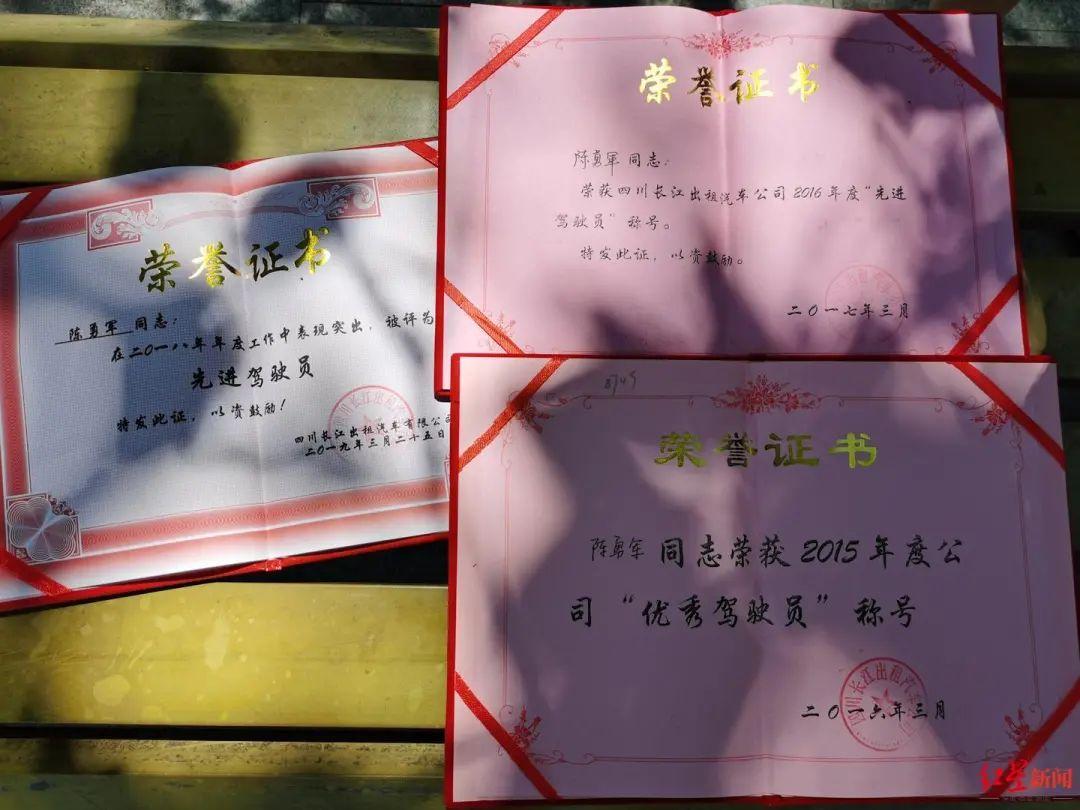 荣誉证书
陈勇军 同志：
荣获四川长江出租汽车公司2016年度“先进
驾驶员”称号。
特发此证，以资鼓励。
二〇一七年三月
荣誉证书
陈勇军 同志：
在二〇一八年年度工作中表现突出，被评为
先进驾驶员
特发此证，以资鼓励！
四川长江出租汽车有限公司
二〇一九年三月二十五日
荣誉证书
陈勇军 同志荣获2015年度公
司“优秀驾驶员”称号
四川长江出租汽车
二〇一六年三月
红星新闻